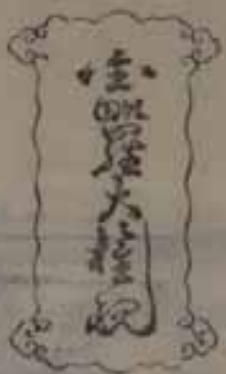 金毗羅大權現